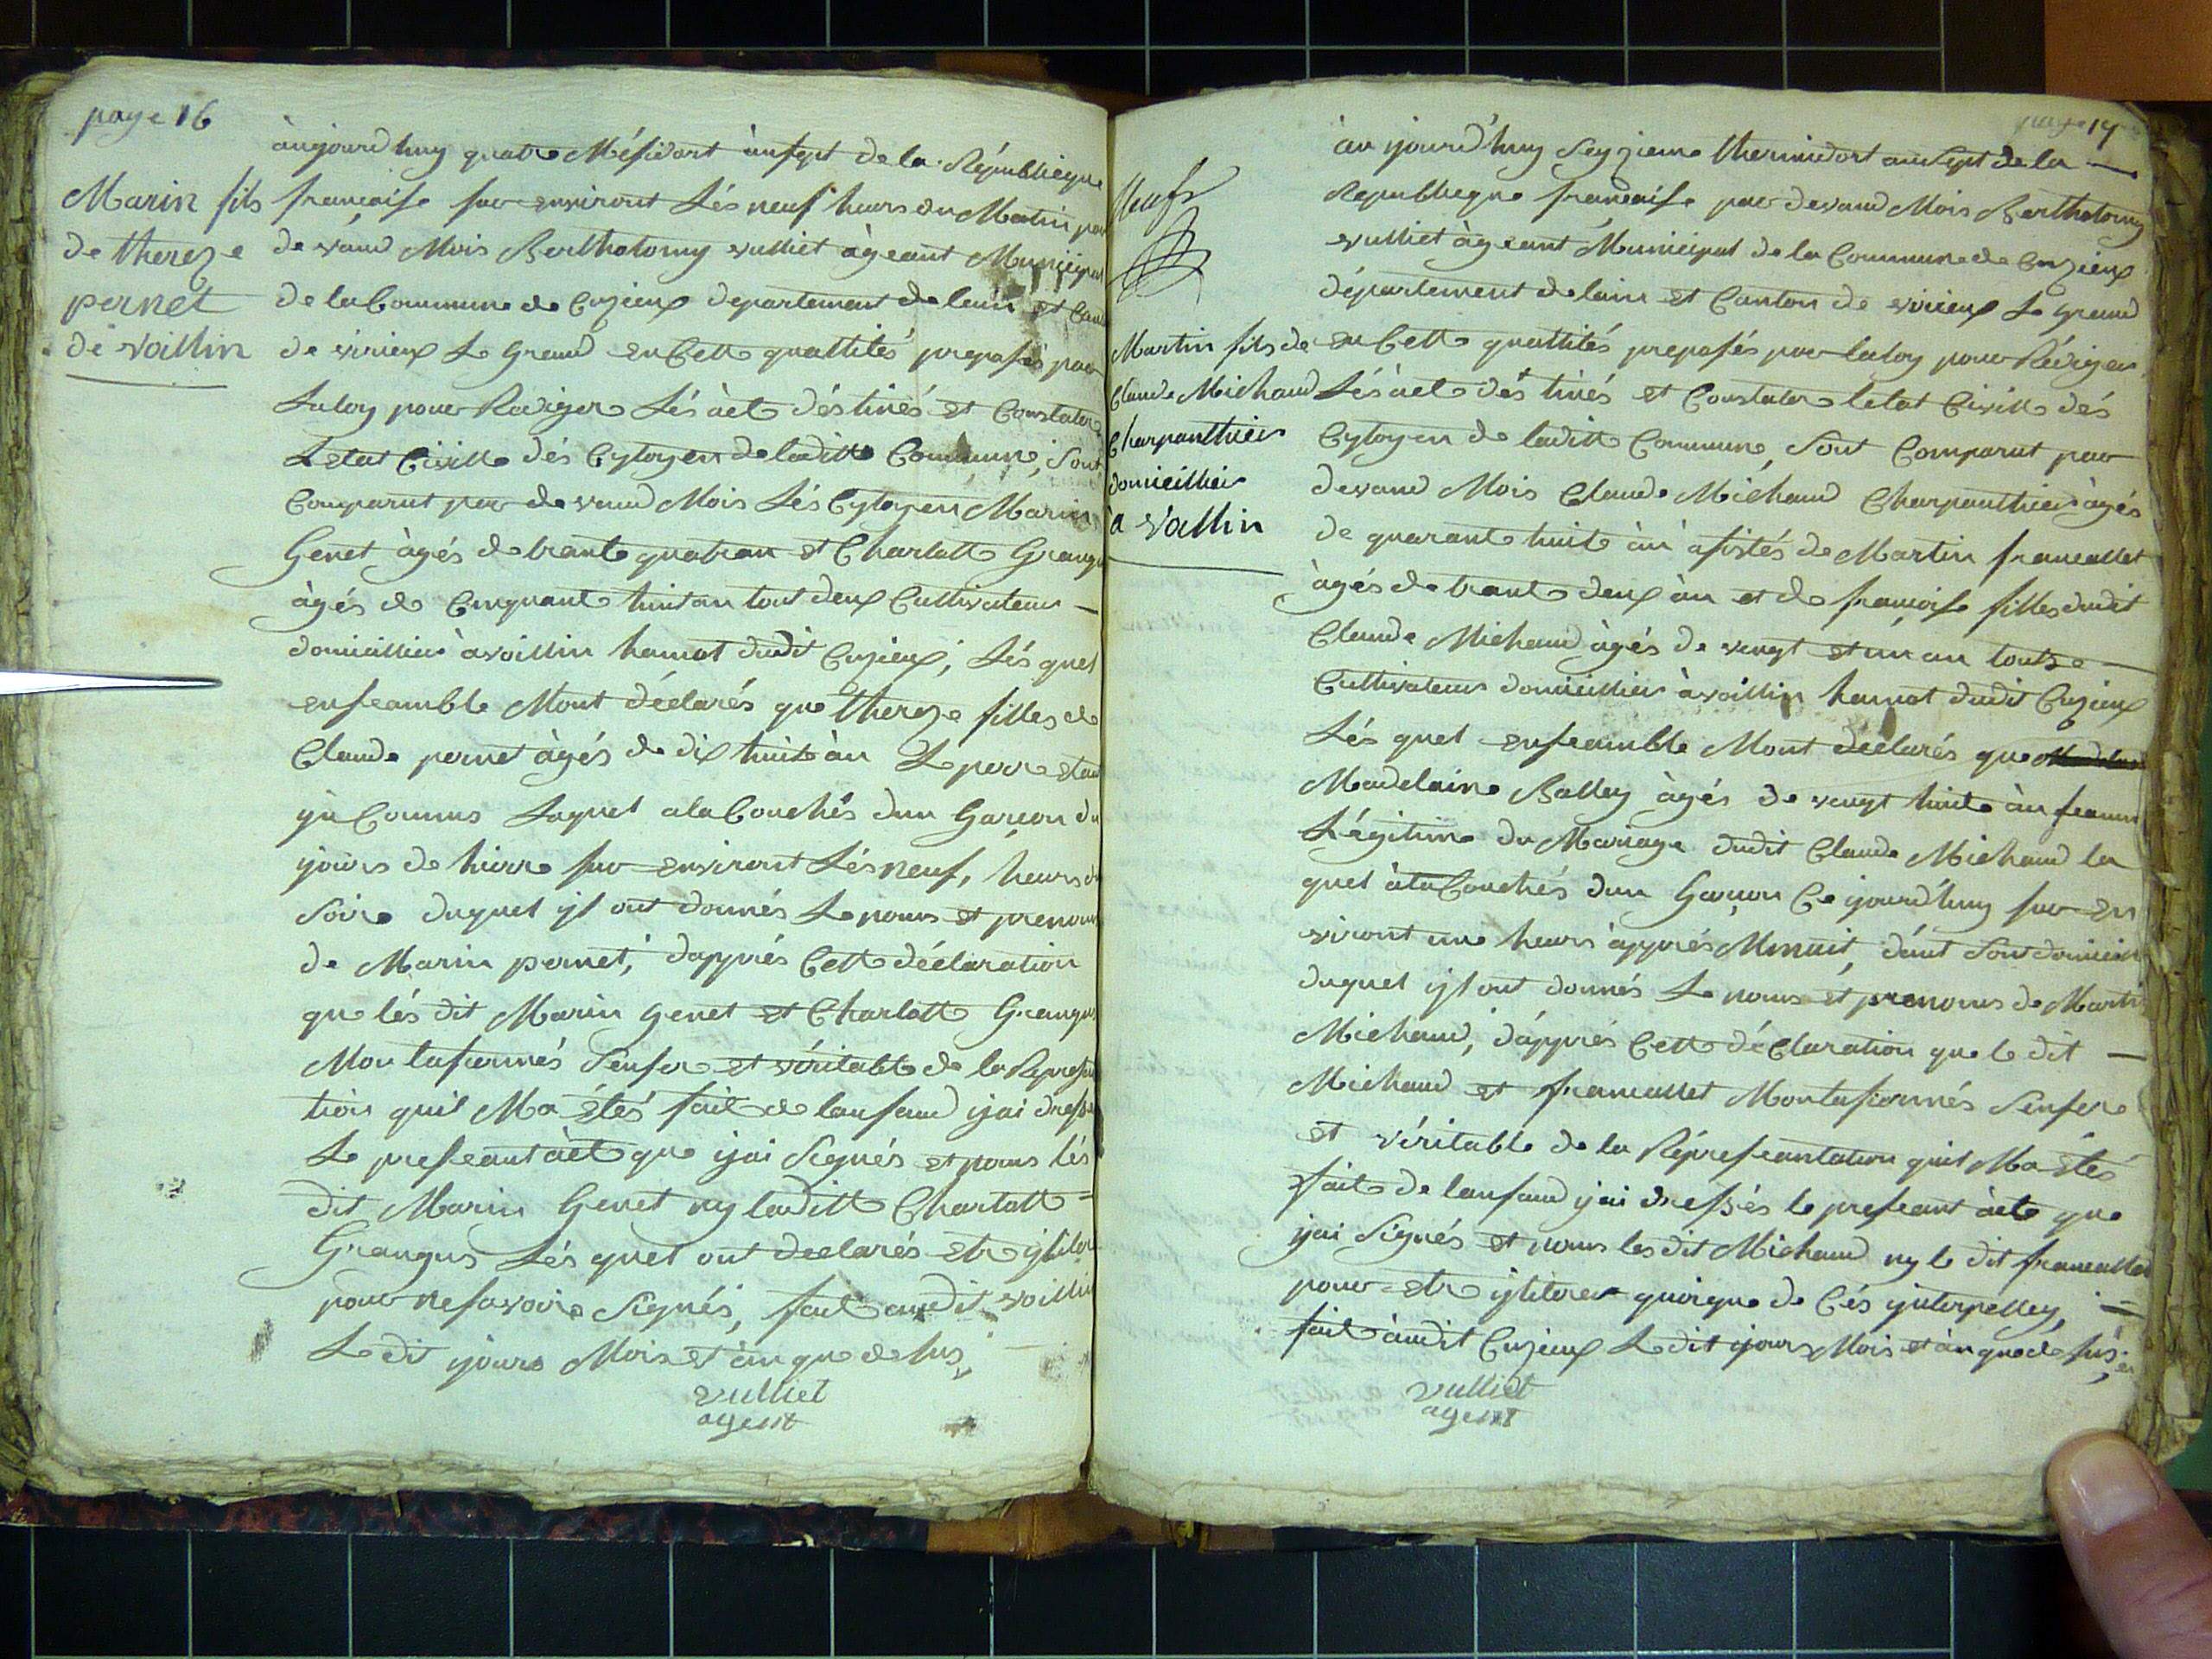 page 16
Marin fils
de thereze
pernet
de voillin
àujourdhuy quatre Mésidort ànsept de la Républieque
francaise sur environt Lés neuf heurs du Matin par
de vand Mois Bertholomy vulliet àgeant Municipal
de la Commune de Cuzieux departement de lain et Canton
de virieux Le Grand en Cette quallités preposés par
Laloy pour Rediger Lés àct déstinés et Constater
Letat Civille dés Cytoyen deladitte Commune, Sont
Comparut par de vand Mois Lés Cytoyen Marin
Genet àgés de trante quatran et Charlotte Grangus
àgés de Cinquante huitan tout deux Cultivateur
domicillier àvoillin hamot dudit Cuzieux, Lés quel
enseamble Mont déclarés que thereze filles de
Claude pernet àgés de dix huit àn Le pere etant
yn Connus Laquel ala Couchés dun Garcon du
ijours de hierre sur environt Lés neuf, heurs du
Soire duquel yl ont donnés Le noms et prenoms
de Marin pernet, dapprés Cette déclaration
que lés dit Marin Genet et Charlotte Grangus
Mont afirmés Sensere et véritable de la Represen
tion quil Ma Etés fait de lanfand ijai dressés
Le preseant àct que ijai Signés et nons lés
dit Marin Genet ny laditte Charlotte
Grangus Lés quel ont declarés etre yliter
pour ne savoire Signés, fait audit voillin
Le dit ijours Mois et àn que de sus,
vulliet
agent
page 17
Neufs
Martin fils de
Claude Michaud
Charpanthier
domicillier
à vollin
àu ijourd'huy Seyzieme thermidort ansept de la
Republieque francaise par devand Mois Bertholomy
vulliet àgeant Municipal de la Commune de Cuzieux
département de lain et Canton de virieux Le grand
en Cette quallités preposés par laloy pour Rédiger
Lés àct dés tinés et Constater letat Civille dés
Cytoyen de laditte Commune, Sont Comparut par
devand Mois Claude Michaud Charpanthier àgés
de quarante huite àn asistés de Martin francallet
àgés de trante deux àn et de francoise filles dudit
Claude Michaud àgés de vengt et un an toutse
Cultivateur domicillier àvoillin hamot dudit Cuzieux
Lés quel enseamble Mont declarés que
Madelaine Balley àgés de vengt huite àn feamme
Légitime du Mariage dudit Claude Michaud la
quel àla Couchés dun Garcon Ce ijourd'huy sur en
viront une heurs àpprés Minuit, dánt Sont domicille
duquel yl ont donnés Le noms et prenoms de Martin
Michaud, dápprés Cette déClaration que le dit
Michaud et francallet Montafirmés Sensere
et véritable de la Répreseantation quil Ma Etés
fait de lanfand ijai dressés le preseant àcte que
ijai Signés et nons les dit Michaud ny le dit francallet
pour etre yliterer quoique de Cés ynterpelley,
fait àudit Cuzieux Le dit ijours Mois et àn que de sus,
vulliet
agent